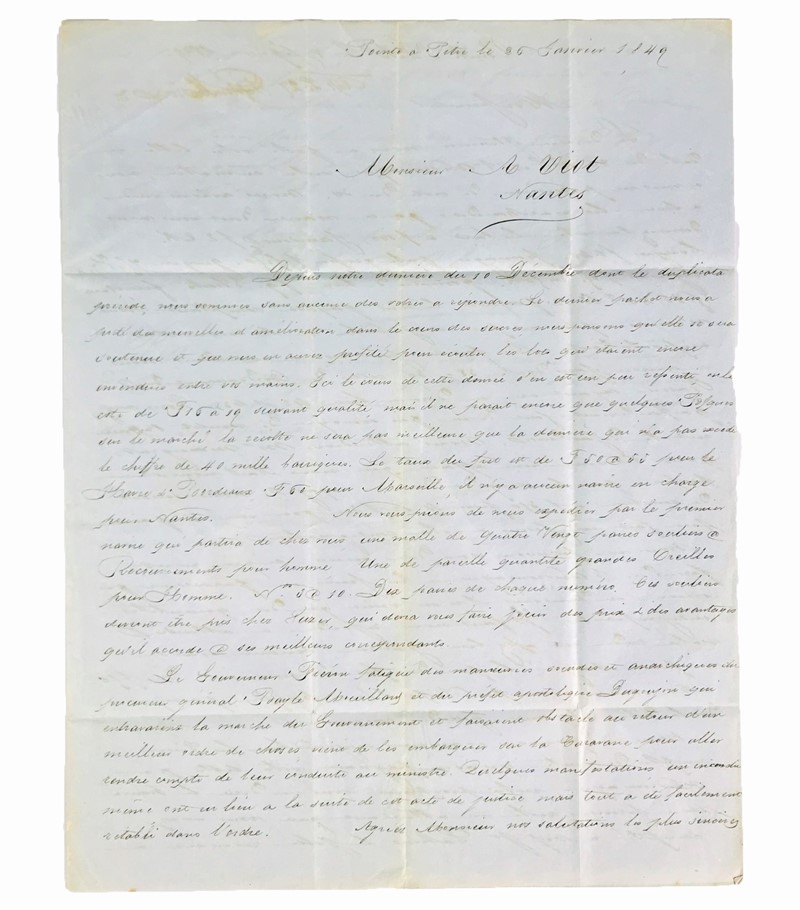 Pointe a Pitre le 26 Janvier 1849
Monsieur A Viot
Nantes
Depuis notre derniere du 10 Décembre dont le duplicata
precede, nous sommes sans aucune des votres a repondre. Le dernier packet nous a
des nouvelles d'amélioration dans le cours des sucres nous pensons qu'elle se sera
soutenue et que vous en aurez profité pour ecouler les lots qui étaient encore
entre vos mains. Ici le cours de cette denrée s'en est un peu ressentie, on le
cote de F 15 a 19 suivant qualité mais il ne parait encore que quelques
sur le marché la recolte ne sera pas meilleure que la derniere qui n'a pas excédé
le chiffre de 40 mille barriques. Le taux du fret est de F 50 @ 55 pour le
Havre & Bordeaux F 60 pour Marseille, il n'y a aucun navire en charge
pour Nantes. Nous vous prions de nous expedier par le premier
navire qui partira de chez vous une malle de Quatre Vingt paires souliers @
Recouvrements pour homme Une de pareille quantité grandes Oreilles
pour Homme. Nos 3 @ 10 Dix paires de chaque numéro. Ces souliers
devront être pris chez Suzer, qui devra vous faire jouir des prix & des avantages
qu'il accorde @ ses meilleurs correspondants.
Le Gouverneur Fiéron fatigué des manoeuvres sourdes et anarchiques du
procureur général Bayle Mouillard et du prefet apostolique Dugoujon qui
entravaient la marche du Gouvernement et faisaient obstacle au retour d'un
meilleur ordre de choses vient de les embarquer sur la Caravane pour aller
rendre compte de leur conduite au ministre. Quelques manifestations, un incendie
même ont eu lieu a la suite de cet acte de justice mais tout a été facilement
retabli dans l'ordre. Agréez Monsieur nos salutations les plus sinceres